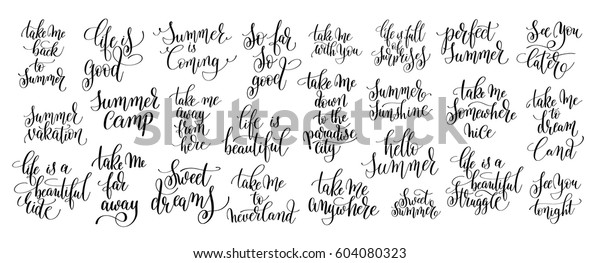 take me
back
to
summer
life is
good
Summer
is
Coming
So far
So
good
take me
with you
life is full
of
Surprises
perfect
Summer
See You
later
Summer
vakation
Summer
camp
take me
away
from
here
life is
beautiful
take Me
down
to the
paradise
city
Summer
Sunshine
hello
Summer
take Me
Somewhere
nice
take Me
to
dream
Land
life is a
beautiful
ride
take Me
far
away
Sweet
dreams
take Me
to
neverland
take Me
anywhere
Sweet
summer
life is a
beautiful
Struggle
See You
tonight
shutterstock
IMAGE ID: 604080323
www.shutterstock.com